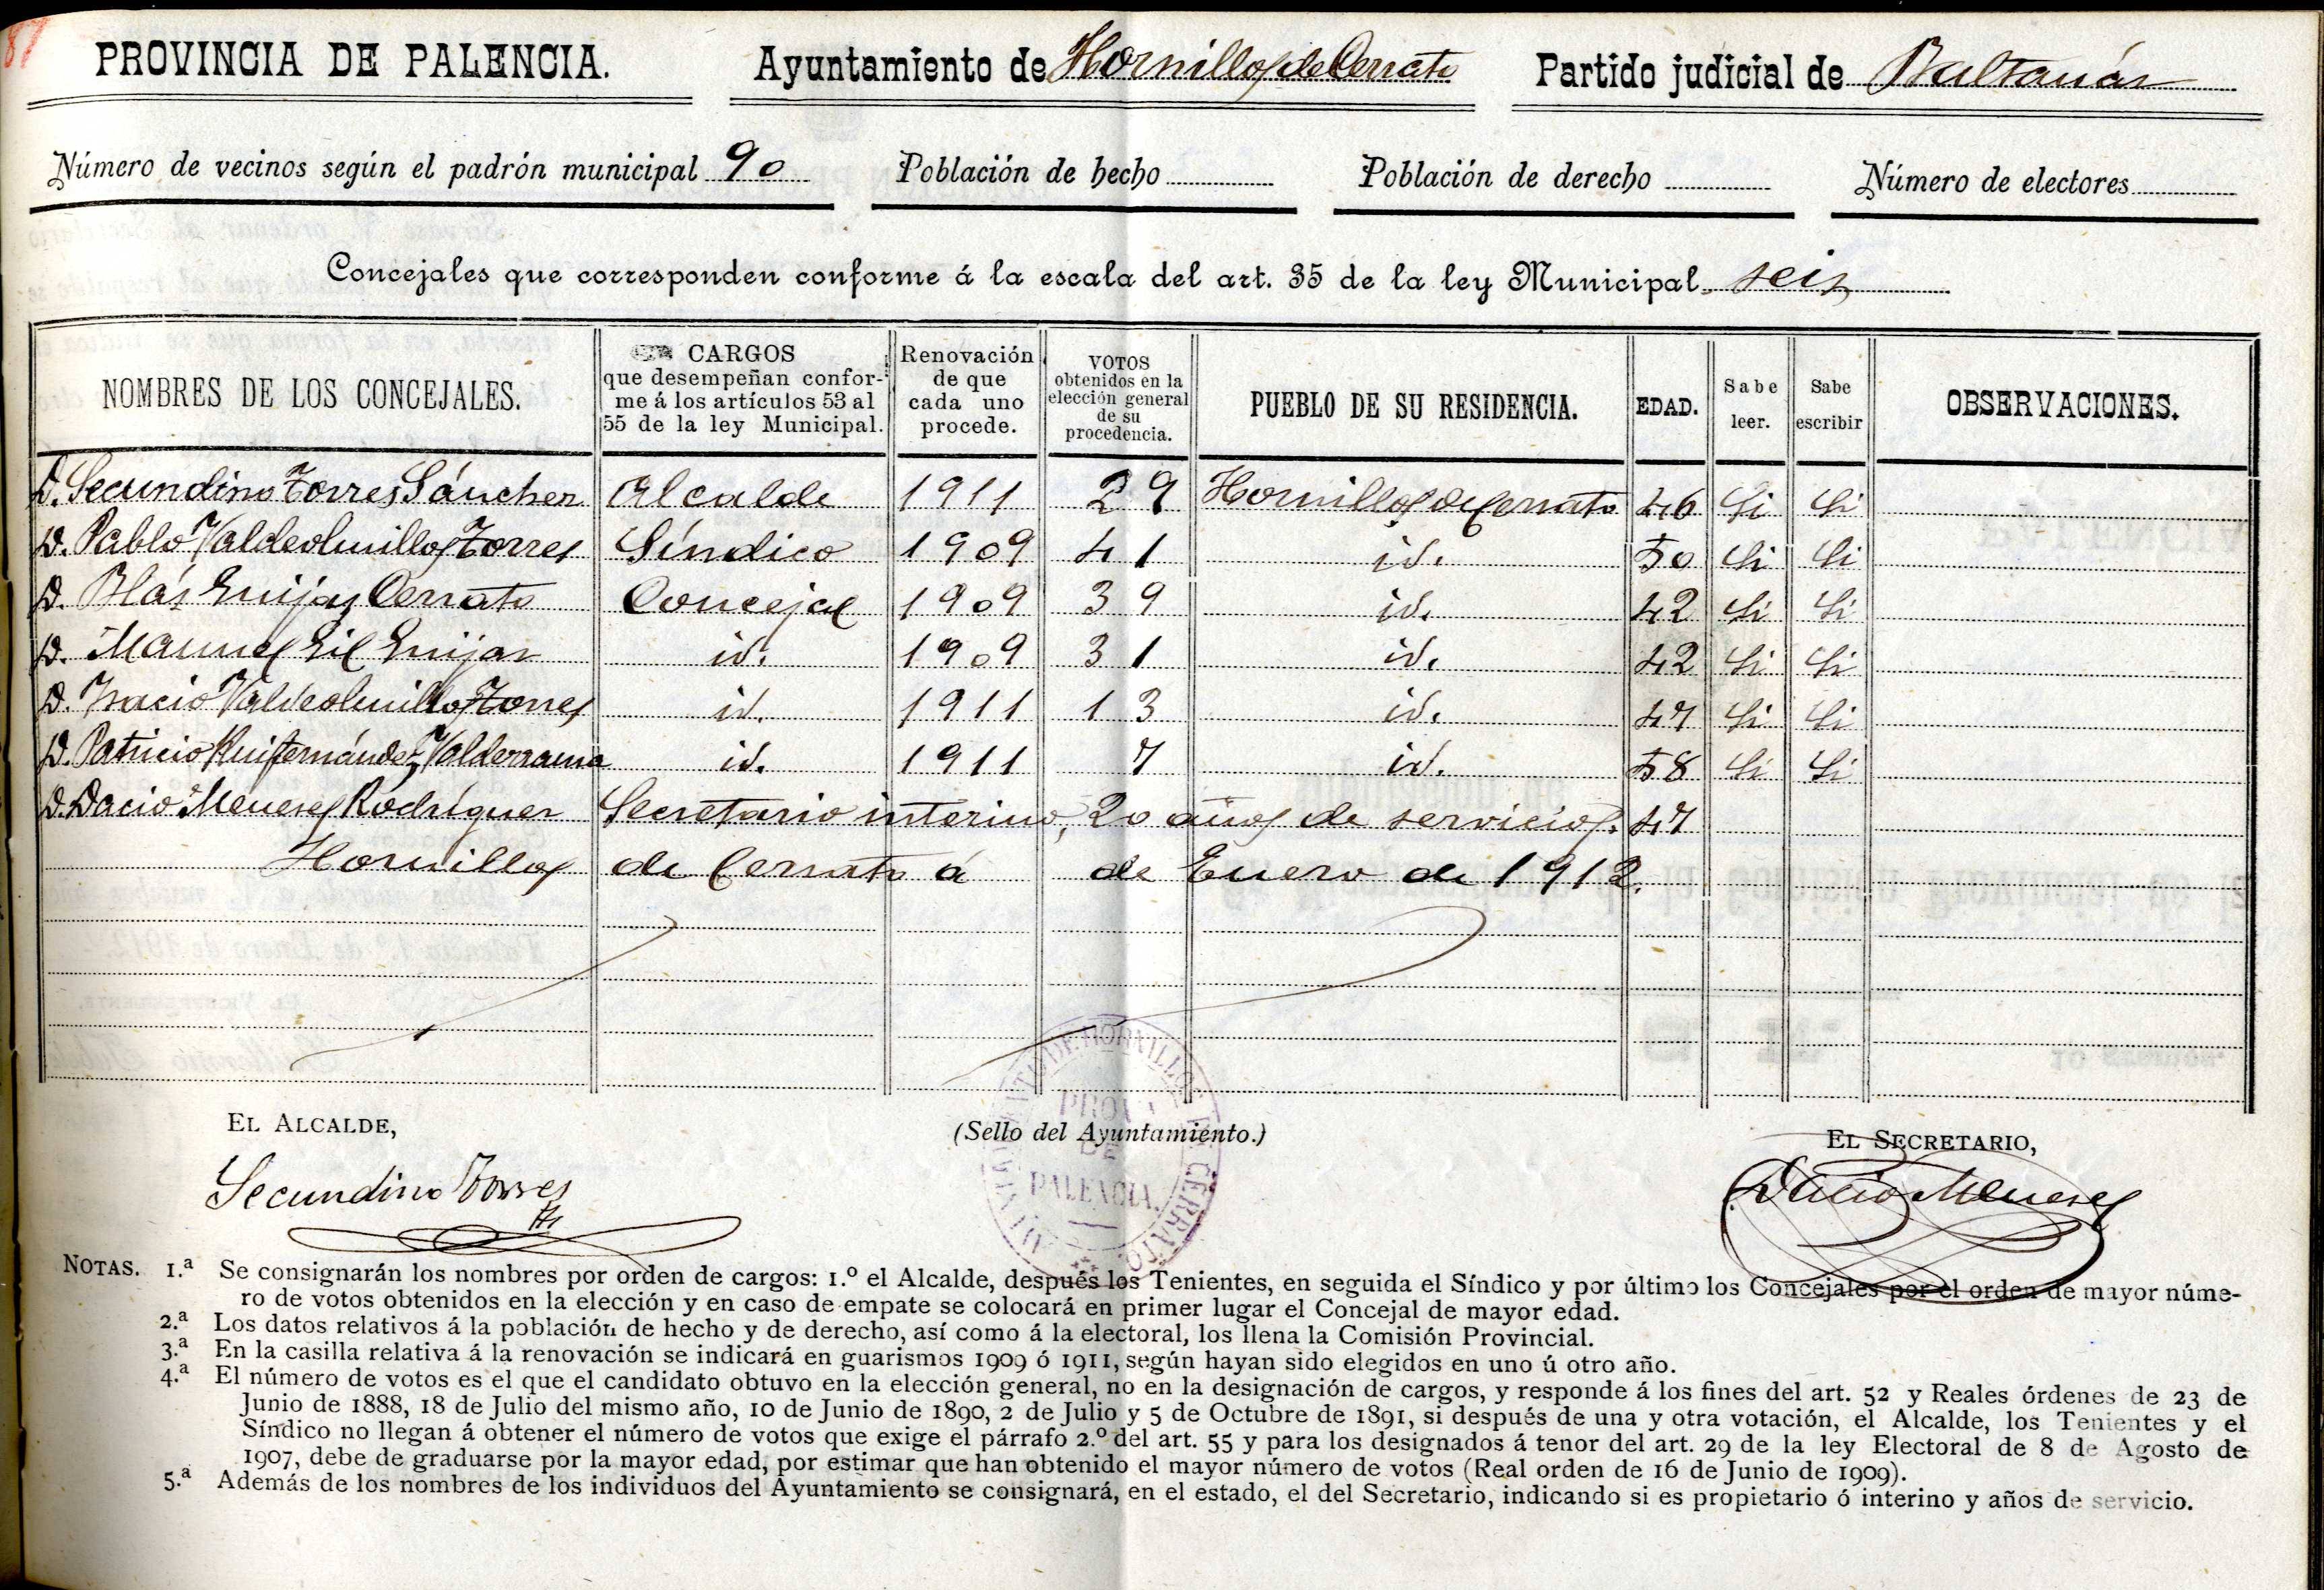 87
PROVINCIA DE PALENCIA. Ayuntamiento de Hornillos de Cerrato Partido judicial de Baltanás
Número de vecinos según el padrón municipal 90 Población de hecho Población de derecho Número de electores
Concejales que corresponden conforme á la escala del art. 35 de la ley Municipal seis
NOMBRES DE LOS CONCEJALES. CARGOS que desempeñan confor-me á los artículos 53 al 55 de la ley Municipal. Renovación de que cada uno procede. VOTOS obtenidos en la elección general de su procedencia. PUEBLO DE SU RESIDENCIA. EDAD. Sabe leer. Sabe escribir OBSERVACIONES.
D. Secundino Torres Sánchez Alcalde 1911 29 Hornillos de Cerrato 46 Si Si
D. Pablo Valdeolmillos Torres Síndico 1909 41 id. 50 Si Si
D. Blás Guijas Cerrato Concejal 1909 39 id. 42 Si Si
D. Manuel Gil Guijas id. 1909 31 id. 42 Si Si
D. Isacio Valdeolmillos Torres id. 1911 13 id. 47 Si Si
D. Patricio Ruifernández Valderrama id. 1911 7 id. 58 Si Si
D. Dacio Meneses Rodríguez Secretario interino, 20 años de servicios. 47
Hornillos de Cerrato á de Enero de 1912.
EL ALCALDE, (Sello del Ayuntamiento.) EL SECRETARIO,
AYUNTAMIENTO DE HORNILLOS DE CERRATO
PROV.ª
DE
PALENCIA.
Secundino Torres Dacio Meneses
NOTAS. 1.ª Se consignarán los nombres por orden de cargos: 1.º el Alcalde, después los Tenientes, en seguida el Síndico y por último los Concejales por el orden de mayor núme-
ro de votos obtenidos en la elección y en caso de empate se colocará en primer lugar el Concejal de mayor edad.
2.ª Los datos relativos á la población de hecho y de derecho, así como á la electoral, los llena la Comisión Provincial.
3.ª En la casilla relativa á la renovación se indicará en guarismos 1909 ó 1911, según hayan sido elegidos en uno ú otro año.
4.ª El número de votos es el que el candidato obtuvo en la elección general, no en la designación de cargos, y responde á los fines del art. 52 y Reales órdenes de 23 de
Junio de 1888, 18 de Julio del mismo año, 10 de Junio de 1890, 2 de Julio y 5 de Octubre de 1891, si después de una y otra votación, el Alcalde, los Tenientes y el
Síndico no llegan á obtener el número de votos que exige el párrafo 2.º del art. 55 y para los designados á tenor del art. 29 de la ley Electoral de 8 de Agosto de
1907, debe de graduarse por la mayor edad, por estimar que han obtenido el mayor número de votos (Real orden de 16 de Junio de 1909).
5.ª Además de los nombres de los individuos del Ayuntamiento se consignará, en el estado, el del Secretario, indicando si es propietario ó interino y años de servicio.